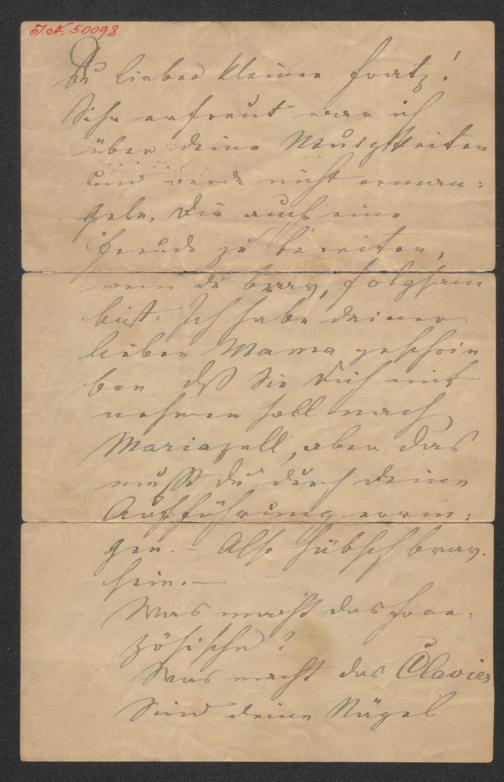 J.N. 50098
Du lieber kleiner Fratz!
Sehr erfreut war ich
über deine Neuigkeiten
und werde nicht erman:
geln, Dir auch eine
Freude zu bereiten,
wenn du brav, folgsam
bist. Ich habe deiner
lieben Mama geschrie
ben daß Sie Dich mit
nehmen soll nach
Mariazell, aber das
mußt du durch deine
Aufführung errin:
gen. – Also hübsch brav
sein. –
Was macht das fran:
zösische?
Was macht das Clavier
Sind deine Nägel